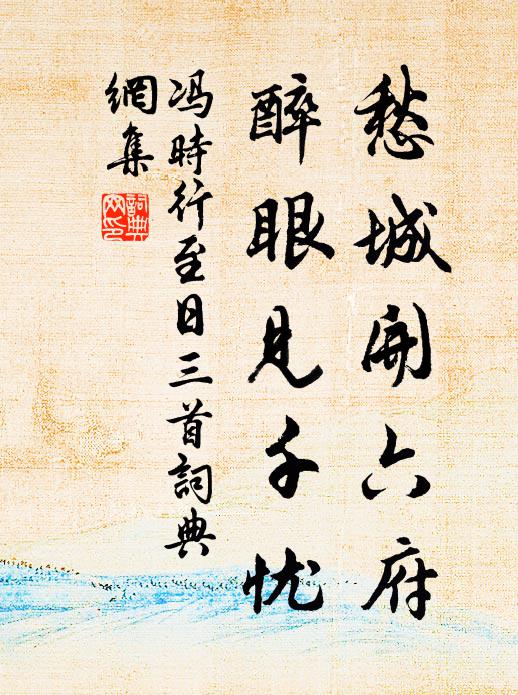 愁城開六府
醉眼見千忧
冯時行至日三首詞典
網集
詞典
网印